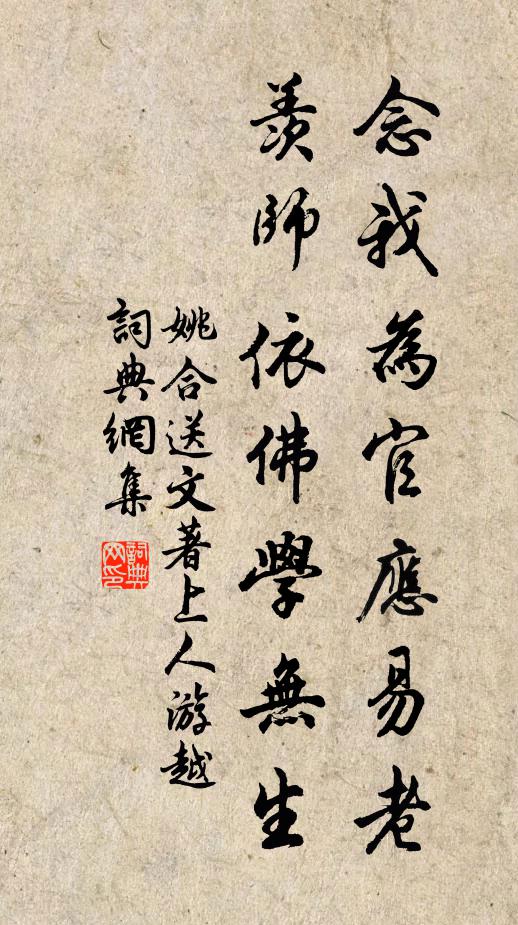 念我為官應易老
羨師依佛學無生
姚合送文著上人游越
詞典網集
詞典网印